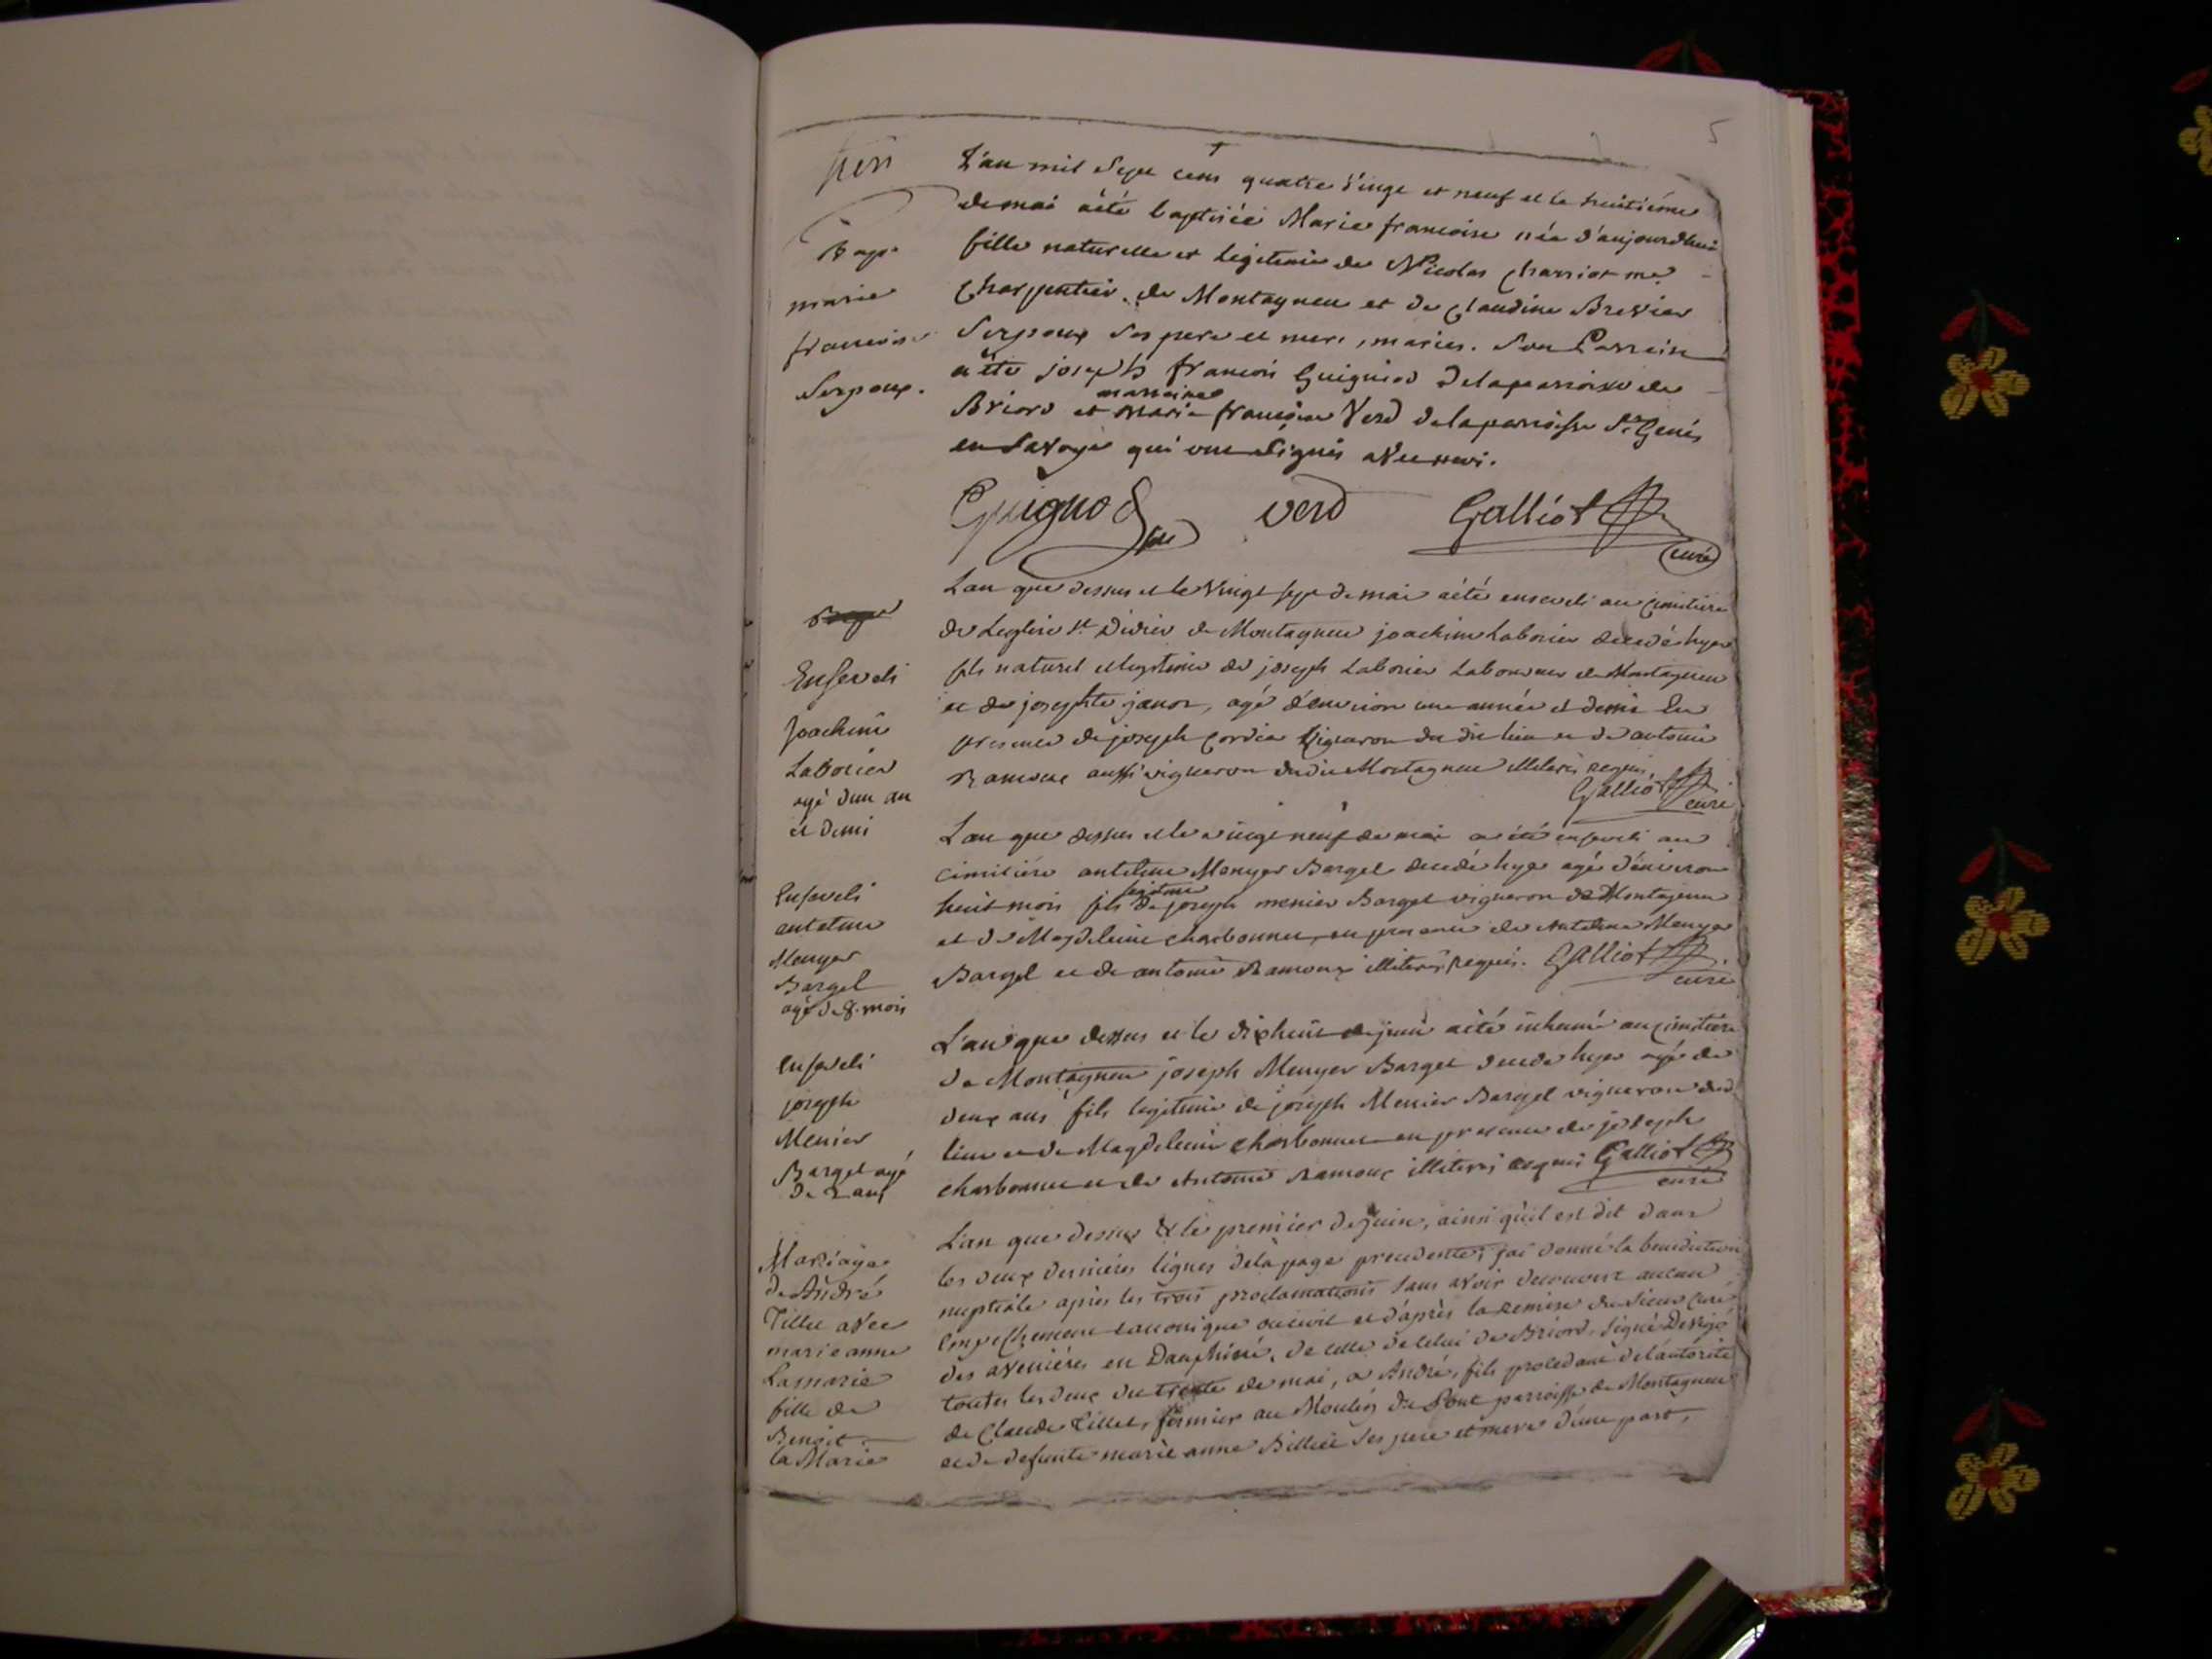 5
L'an mil sept cens quatre vingt et neuf et le huitiéme
Bapt.
de mai a été baptisée Marie francoise née d'aujourdhui
marie
fille naturelle et legitime de Nicolas Charriot me.
francoise
Charpentier de Montagneu et de Claudine Brevier
Serpoux.
Serpoux ses pere et mere, mariés. Son Parrain
a été joseph francois Guignod de la parroisse de
Briord et marraine marie francoise Verd de la parroisse St Genis
en Savoye qui ont signés avec moi.
Guignod verd Galliot
curé
L'an que dessus et le vingt sept de mai a été enseveli au cimitiére
de L'eglise St. Didier de Montagneu joachim Laborier decedé hyer
Enseveli
fils naturel et legitime de joseph Laborier Laboureur de Montagneu
Joachim
et de josephte janot, agé d'environ une année et demie En
Laborier
presence de joseph Cordier vigneron du dit lieu et de antoine
agé d'un an
Ramoux aussi vigneron dudit Montagneu illiterés requis.
et demi
Galliot curé
L'an que dessus et le vingt neuf de mai a été enseveli au
cimitiére antelme Menyer Bargel decedé hyer agé d'environ
Enseveli
huit mois fils legitime de joseph menier Bargel vigneron de Montagneu
antelme
et de Magdeleine charbonnet, en presence de Antelme Menyer
Menyer
Bargel et de antoine Ramoux illiterés requis. Galliot
Bargel
curé
agé de 8. mois
L'an que dessus et le dixhuit de juin a été inhumé au cimitiére
Enseveli
de Montagneu joseph Menyer Bargel decedé hyer agé de
joseph
deux ans fils legitime de joseph Menier Bargel vigneron dud.
Menier
lieu et de Magdeleine charbonnet en presence de joseph
Bargel agé
charbonnet et de Antoine Ramoux illiterés requis Galliot
de 2 ans
curé
L'an que dessus & le premier de juin, ainsi qu'il est dit dans
Mariage
les deux dernieres lignes de la page precedente, j'ai donné la benediction
de André
nuptiale après les trois proclamations sans avoir decouvert aucun
Tillet avec
empechement canonique ou civil et d'après la remise du sieur curé
marie anne
des avenieres en Dauphiné, de celle de celui de Briord, signé
Lamarie
toutes les deux du trente de mai, a André, fils procedant de l'autorité
fille de
de Claude Tillet, fermier au Moulin du Pont parroisse de Montagneu
Benoit
et de defunte marie anne Billiet ses pere et mere d'une part,
la Marie